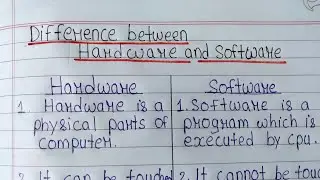 Difference between
Hardware and Software
Hardware
1. Hardware is a
physical parts of
computer.
2. It can be touched
Software
1. Software is a
program which is
executed by cpu.
2. It cannot be